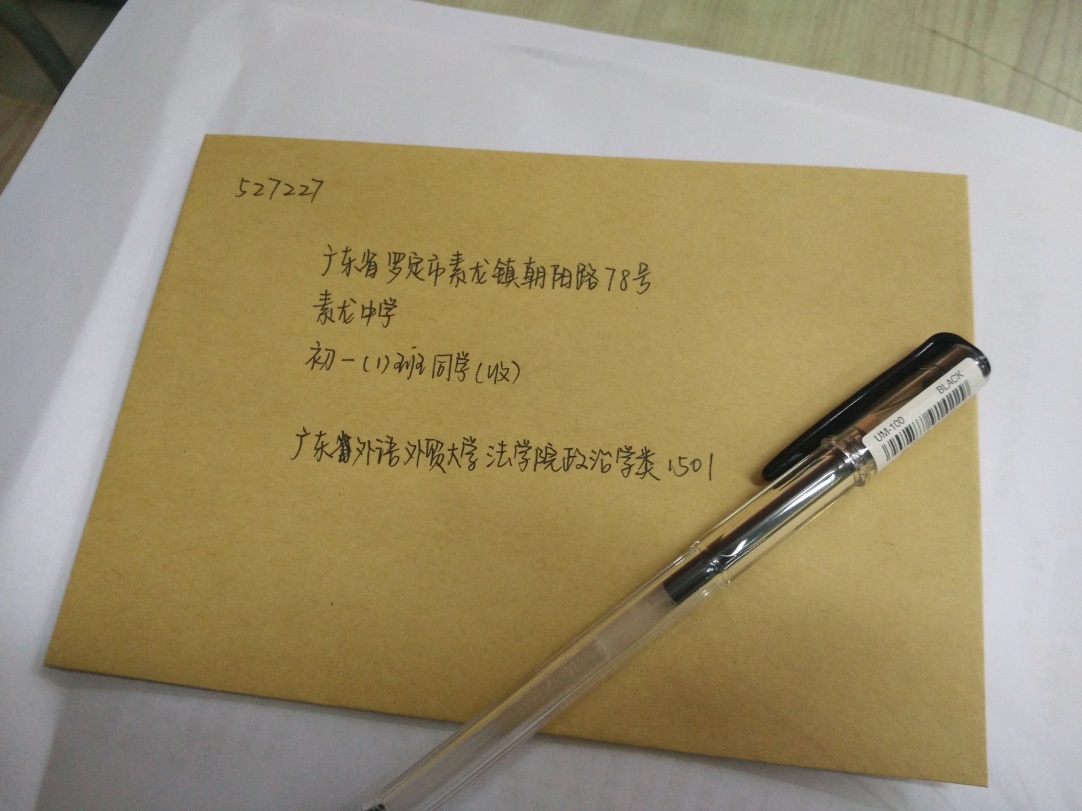 527227
广东省罗定市素龙镇朝阳路78号
素龙中学
初一(1)班同学(收)
广东省外语外贸大学法学院政治学类1501
UM-100
BLACK